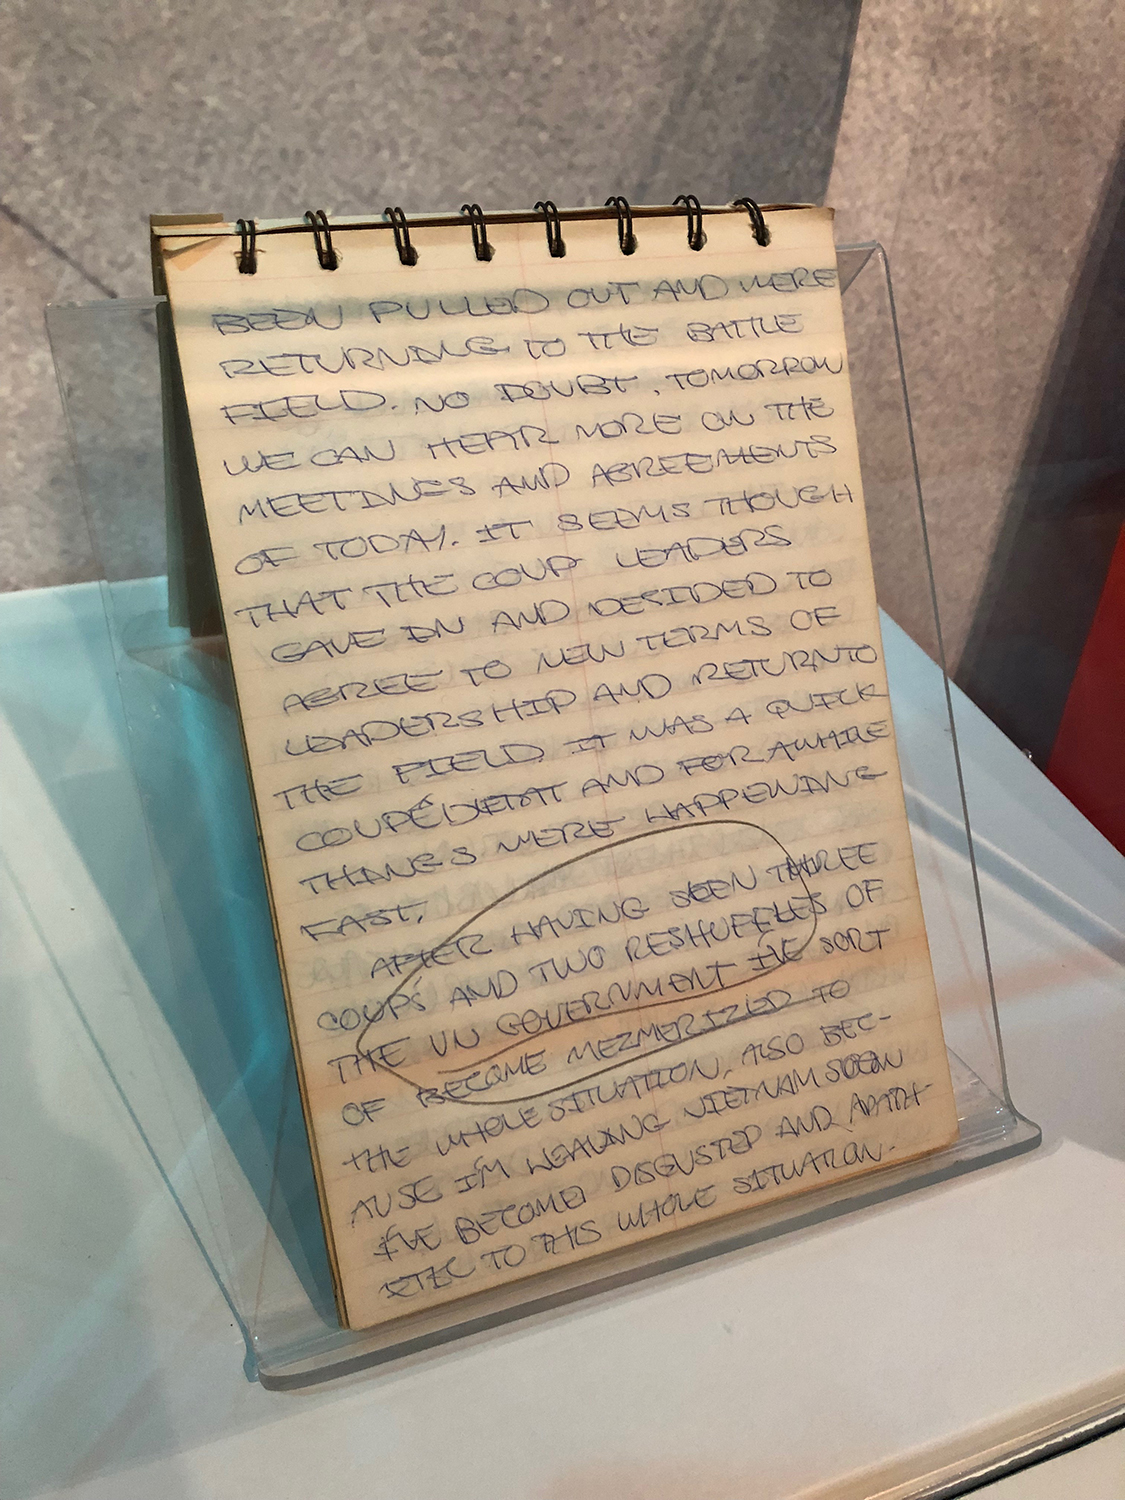 BEEN PULLED OUT AND WERE
RETURNING TO THE BATTLE
FIELD. NO DOUBT, TOMORROW
WE CAN HEAR MORE ON THE
MEETINGS AND AGREEMENTS
OF TODAY. IT SEEMS THOUGH
THAT THE COUP LEADERS
GAVE IN AND DESIDED TO
AGREE TO NEW TERMS OF
LEADERSHIP AND RETURN TO
THE FIELD. IT WAS A QUICK
COUPÉ D'ETAT AND FOR AWHILE
THINGS WERE HAPPENING
FAST.
AFTER HAVING SEEN THREE
COUPS AND TWO RESHUFFLES OF
THE VN GOVERNMENT I'VE SORT
OF BECOME MEZMERIZED TO
THE WHOLE SITUATION, ALSO BEC-
AUSE I'M LEAVING VIETNAM SOON
I'VE BECOME DISGUSTED AND APATH-
ETIC TO THIS WHOLE SITUATION.